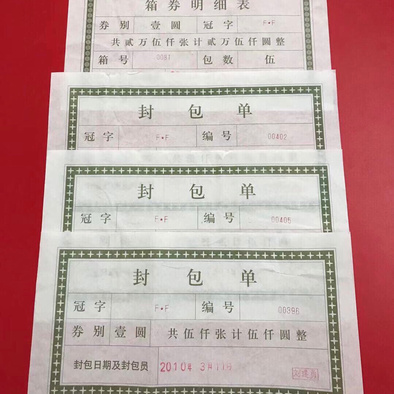 箱券明细表
券别 壹圆 冠字 F•F
共贰万伍仟张计贰万伍仟圆整
箱号 包数 伍
封包单
冠字 F•F 编号 00402
封包单
冠字 F•F 编号 00405
封包单
冠字 F•F 编号 00396
券别 壹圆 共伍仟张计伍仟圆整
封包日期及封包员 2010年 3月11日